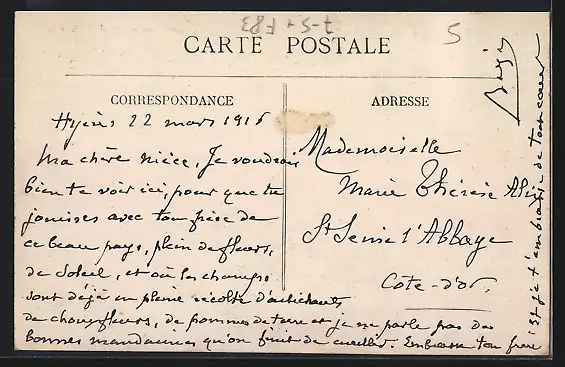 7-5+F83
5
CARTE POSTALE
CORRESPONDANCE
ADRESSE
Hyères 22 mars 1916
Ma chère nièce, Je voudrais
bien te voir ici, pour que tu
jouisses avec ton frère de
ce beau pays, plein de fleurs,
de soleil, et où les champs
sont déjà en pleine récolte d'artichauts
de chouxfleurs, de pommes de terre et je ne parle pas des
bonnes mandarines qu'on finit de cueillir. Embrasse ton frère
et je t'embrasse de tout coeur
Mademoiselle
Marie Thérèse Alix
St Seine l'Abbaye
Côte-d'Or.